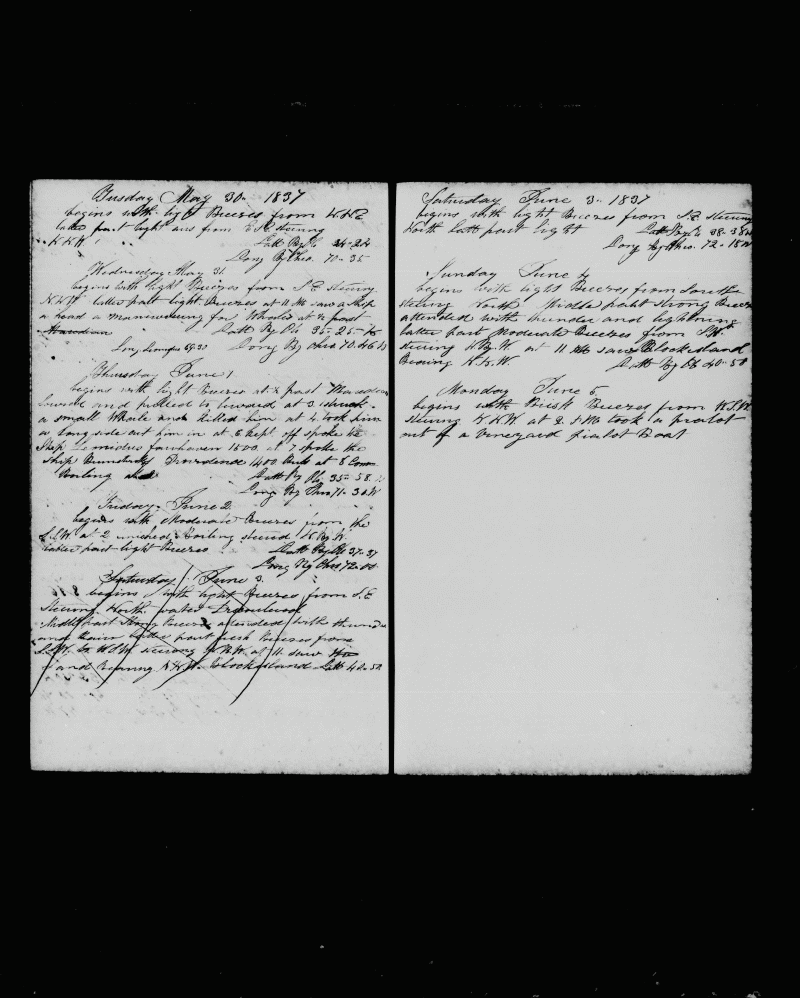 Tusday May 30 1837
begins with light Breezes from N.N.E
latter part light airs from E.S.E steering
N.N.W Latt By Ob 34-24
Long By Chro. 70-35
Wednesday May 31
begins with light Breezes from S.E steering
N.N.W latter part light Breezes at 11 AM saw a Ship
a head a maneuvering for Whales at ½ past
Meridian Latt By Ob 35-25-N
Long By Chro 70.46 W
Thursday June 1
begins with light Breezes at ½ past Meridian
lowerd and pulled to leward at 3 struck
a small Whale and killed him at 4 took him
a long side cut him in at 6 kept off spoke the
Ship Leonidas fairhaven 1500 at 7 spoke the
Ship 1400 at 8 Com
Boiling Latt By Ob 35-58 N
Long By Chro 71-30 W
Friday June 2
begins with Moderate Breezes from the
S.S.W. at 2 Boiling steerd N By W
latter part light Breezes Latt By Ob 37-37
Long By Chro 72-00
Saturday June 3
begins with light Breezes from S.E
Steering North
Middle part Strong Breezes attended with thunder
and latter part fresh Breezes from
S.S.W. to W.S.W steering N.B.W. at 11 saw
land Bearing N.N.W. Block island Latt 40-50
Saturday June 3 1837
begins with light Breezes from S.E steering
North latt part light Latt By Ob 38-38 N
Long By Chro. 72-18 W
Sunday June 4
begins with light Breezes from South
steering North Middle part Strong Breezes
attended with thunder and lightning
latter part Moderate Breezes from SW
steering N By W at 11 AM saw Block island
Bearing N.N.W. Latt By Ob 40-50
Monday June 5
begins with Brisk Breezes from W.S.W.
steering N.N.W at 2 PM took a pialot
out of a Vineyard pialot Boat